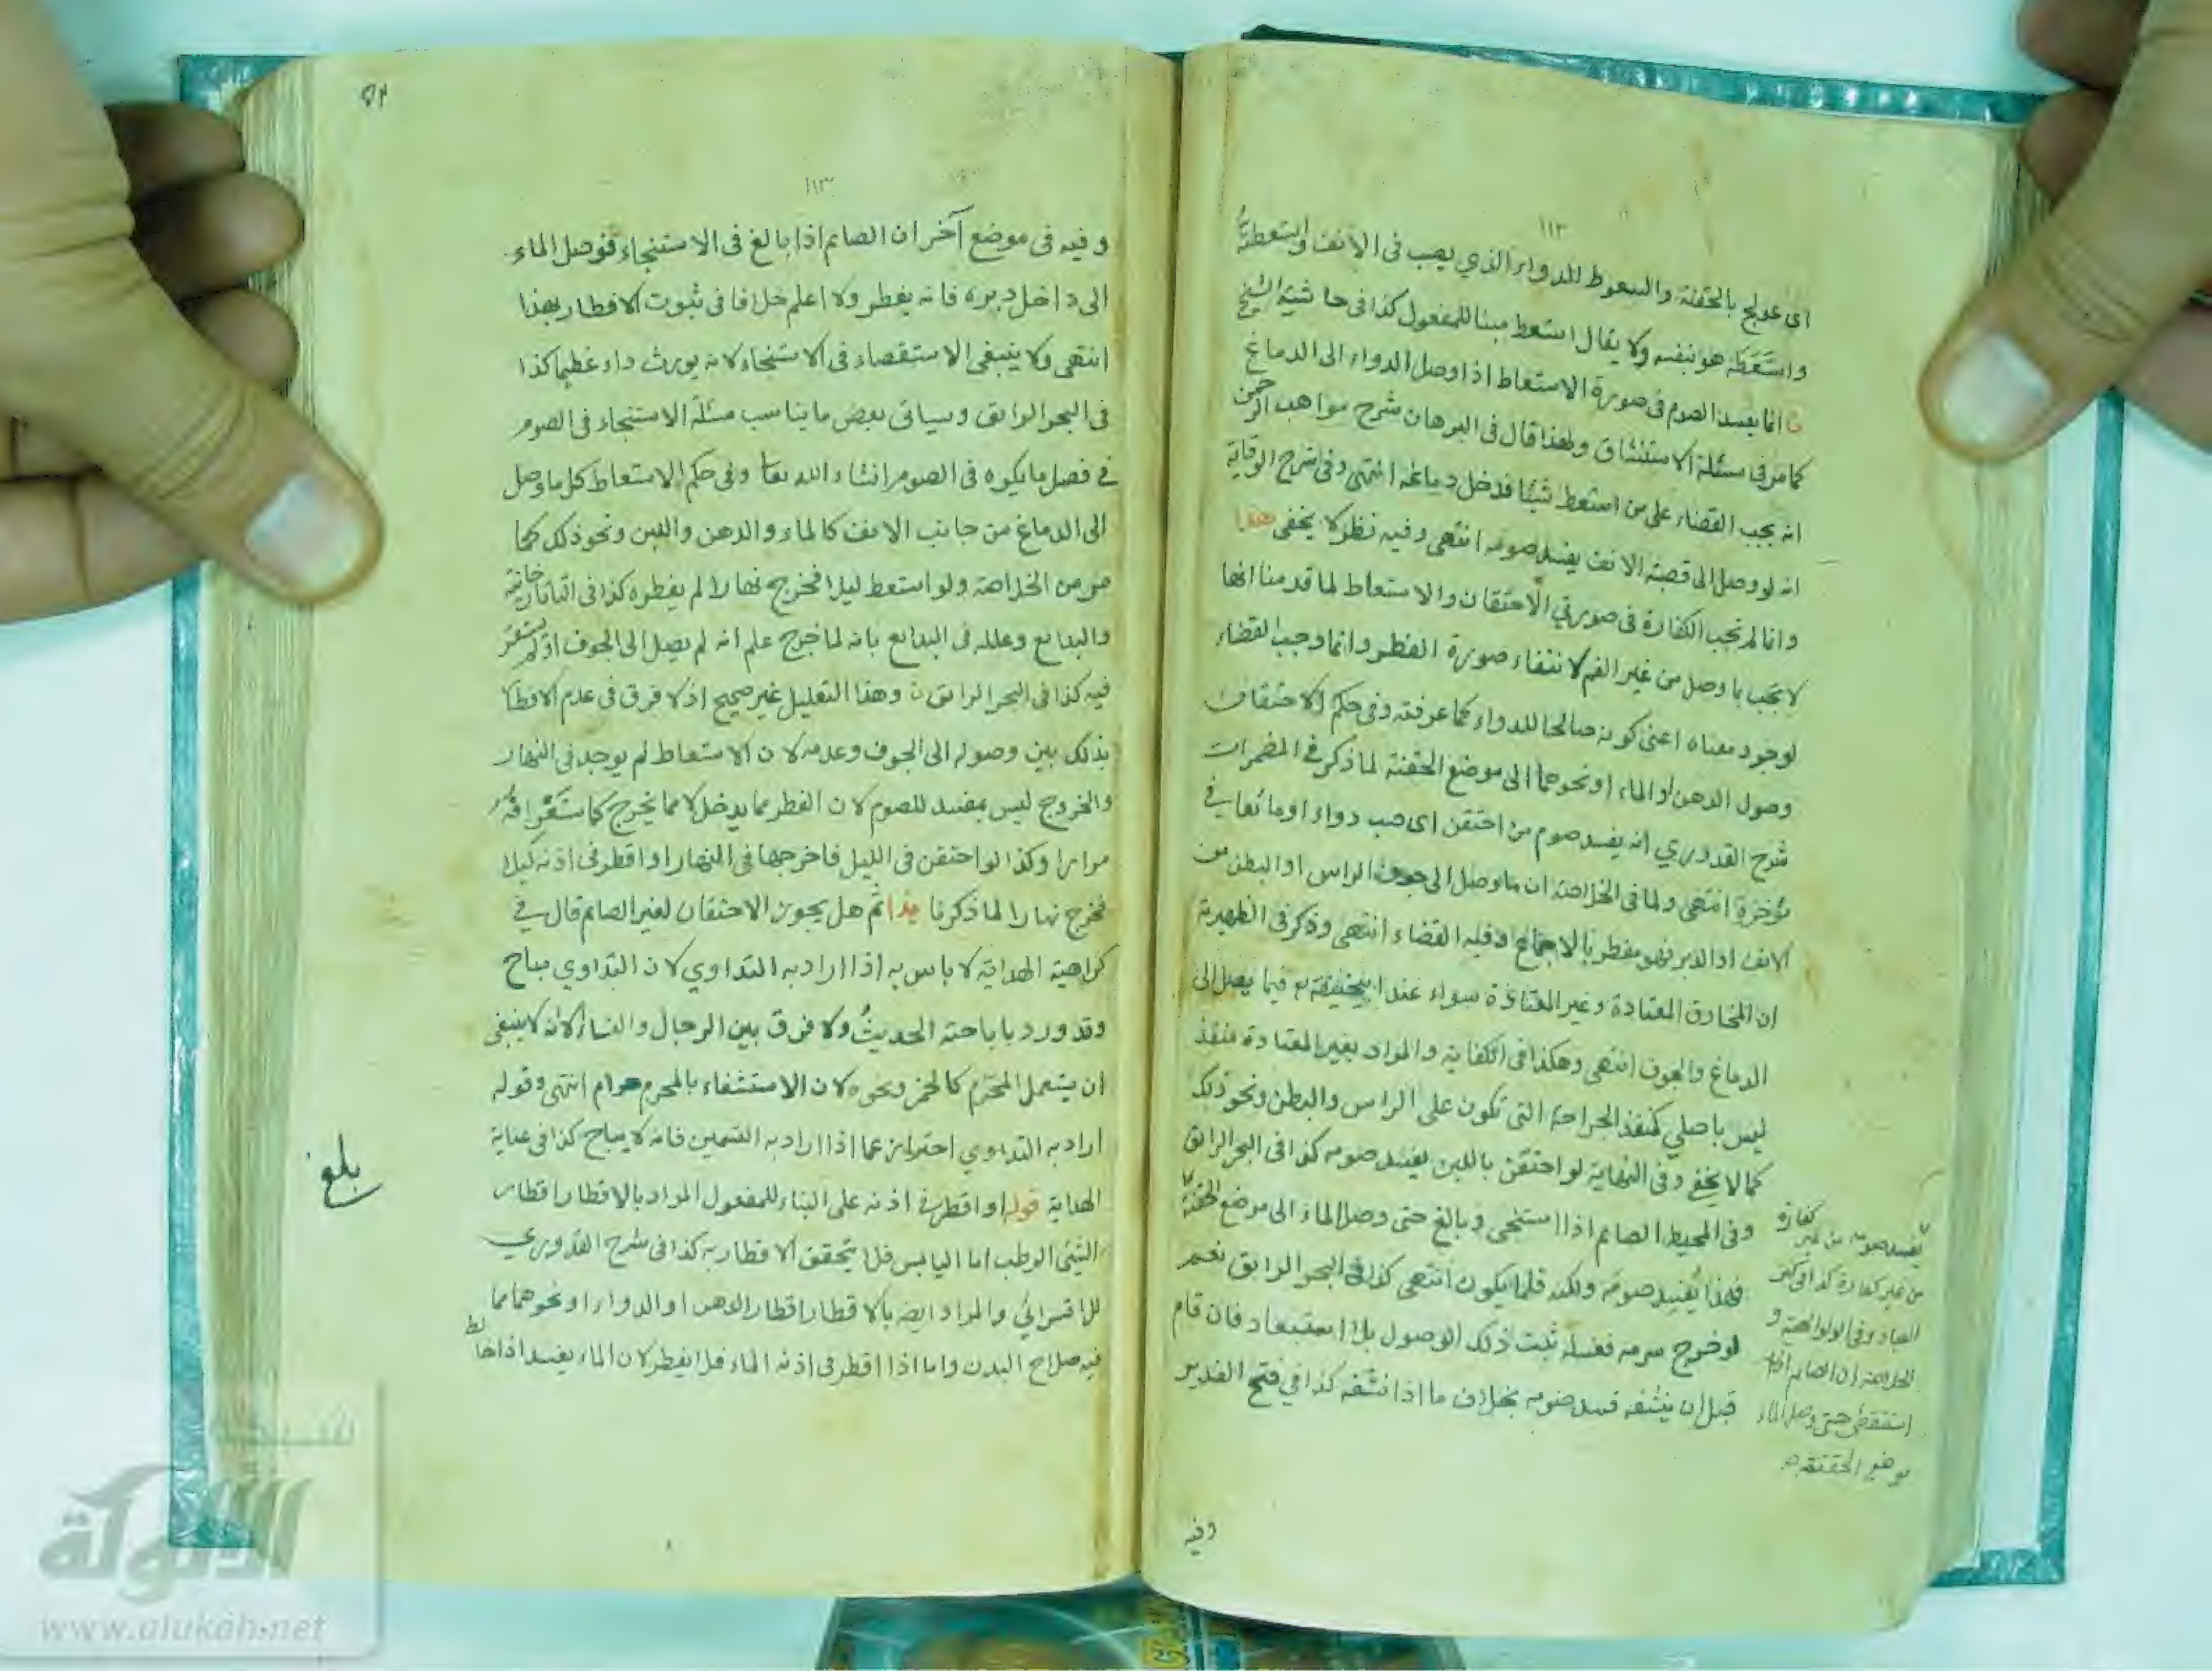 ١١٢
اى عولج بالحقنة والسعوط للدواء الذي يصب فى الانف
واستعطه هو بنفسه ولا يقال استعط مبنيا للمفعول كذا فى حاشية الشيخ
انما يفسد الصوم فى صورة الاستعاط اذا وصل الدواء الى الدماغ
كما مر فى مسئلة الاستنشاق ولهذا قال فى البرهان شرح مواهب الرحمن
انه يجب القضاء على من استعط شيئا فدخل دماغه انتهى وفى شرح الوقاية
انه لو وصل الى قصبة الانف يفسد صومه انتهى وفيه نظر لا يخفى هذا
وانما لم تجب الكفارة فى صورتي الاحتقان والاستعاط لما قدمنا انها
لا تجب بما وصل من غير الفم لانتفاء صورة الفطر وانما وجب القضاء
لوجود معناه اعنى كونه صالحا للدواء كما عرفته وفى حكم الاحتقان
وصول الدهن او الماء او نحوهما الى موضع الحقنة لما ذكر في المضمرات
شرح القدوري انه يفسد صوم من احتقن اى صب دواء او مائعا في
مؤخره انتهى ولما فى الخلاصة ان ما وصل الى جوف الراس او البطن من
الانف او الدبر فهو مفطر بالاجماع وفيه القضاء انتهى وذكر فى الظهيرية
ان المخارق المعتادة وغير المعتادة سواء عند ابيحنيفة رح فيما يصل الى
الدماغ والجوف انتهى وهكذا فى الكفاية والمراد بغير المعتادة منفذ
ليس باصلي كمنفذ الجراحة التى تكون على الراس والبطن ونحو ذلك
كما لا يخفى وفى النهاية لو احتقن باللبن يفسد صومه كذا فى البحر الرائق
وفى المحيط الصايم اذا استنجى وبالغ حتى وصل الماء الى موضع الحقنة
فهذا يفسد صومه ولكنه قلما يكون انتهى كذا فى البحر الرائق نعم
لو خرج سرمه فغسله ثبت ذلك الوصول بلا استبعاد فان قام
قبل ان ينشفه فسد صومه بخلاف ما اذا نشفه كذا في فتح القدير
يفسد صومه من غير كفارة
من غير كفارة كذا فى كنز
العباد وفى الولوالجية و
الخلاصة ان الصايم اذا
استقصى حتى وصل الماء
موضع الحقنة
وفيه
٥٢
١١٣
وفيه فى موضع آخر ان الصايم اذا بالغ فى الاستنجاء فوصل الماء
الى داخل دبره فانه يفطر ولا اعلم خلافا فى ثبوت الافطار بهذا
انتهى ولا ينبغى الاستقصاء فى الاستنجاء لانه يورث داء عظيما كذا
فى البحر الرايق وسياتى بعض ما يناسب مسئلة الاستنجاء فى الصوم
في فصل ما يكره فى الصوم انشاء الله تعا وفى حكم الاستعاط كل ما وصل
الى الدماغ من جانب الانف كالماء والدهن واللبن ونحو ذلك كما
مر من الخلاصة ولو استعط ليلا فخرج نهارا لم يفطره كذا فى التاتارخانية
والبدايع وعلله فى البدايع بانه لما خرج علم انه لم يصل الى الجوف او لم يستقر
فيه كذا فى البحر الرايق وهذا التعليل غير صحيح اذ لا فرق فى عدم الافطا
بذلك بين وصوله الى الجوف وعدمه لان الاستعاط لم يوجد فى النهار
والخروج ليس بمفسد للصوم لان الفطر مما يدخل لا مما يخرج كما ستعرفه
مرارا وكذا لو احتقن فى الليل فاخرجها فى النهار او اقطر فى اذنه ليلا
فخرج نهارا لما ذكرنا هذا ثم هل يجوز الاحتقان لغير الصايم قال في
كراهية الهداية لا باس به اذا اراد به التداوي لان التداوي مباح
وقد ورد باباحته الحديث ولا فرق بين الرجال والنساء الا انه لا ينبغى
ان يستعمل المحرم كالخمر ونحوه لان الاستشفاء بالمحرم حرام انتهى وقوله
اراد به التداوي احتراز عما اذا اراد به التسمين فانه لا يباح كذا فى عناية
الهداية قوله او اقطر في اذنه على البناء للمفعول المراد بالاقطار اقطار
الشئ الرطب اما اليابس فلا يتحقق الاقطار به كذا فى شرح القدوري
للاقسرائي والمراد ايضا بالاقطار اقطار الدهن او الدواء او نحوهما مما
فيه صلاح البدن واما اذا اقطر فى اذنه الماء فلا يفطر لان الماء يفسد اذا خالط
بلغ
شبكة
الألوكة
www.alukah.net